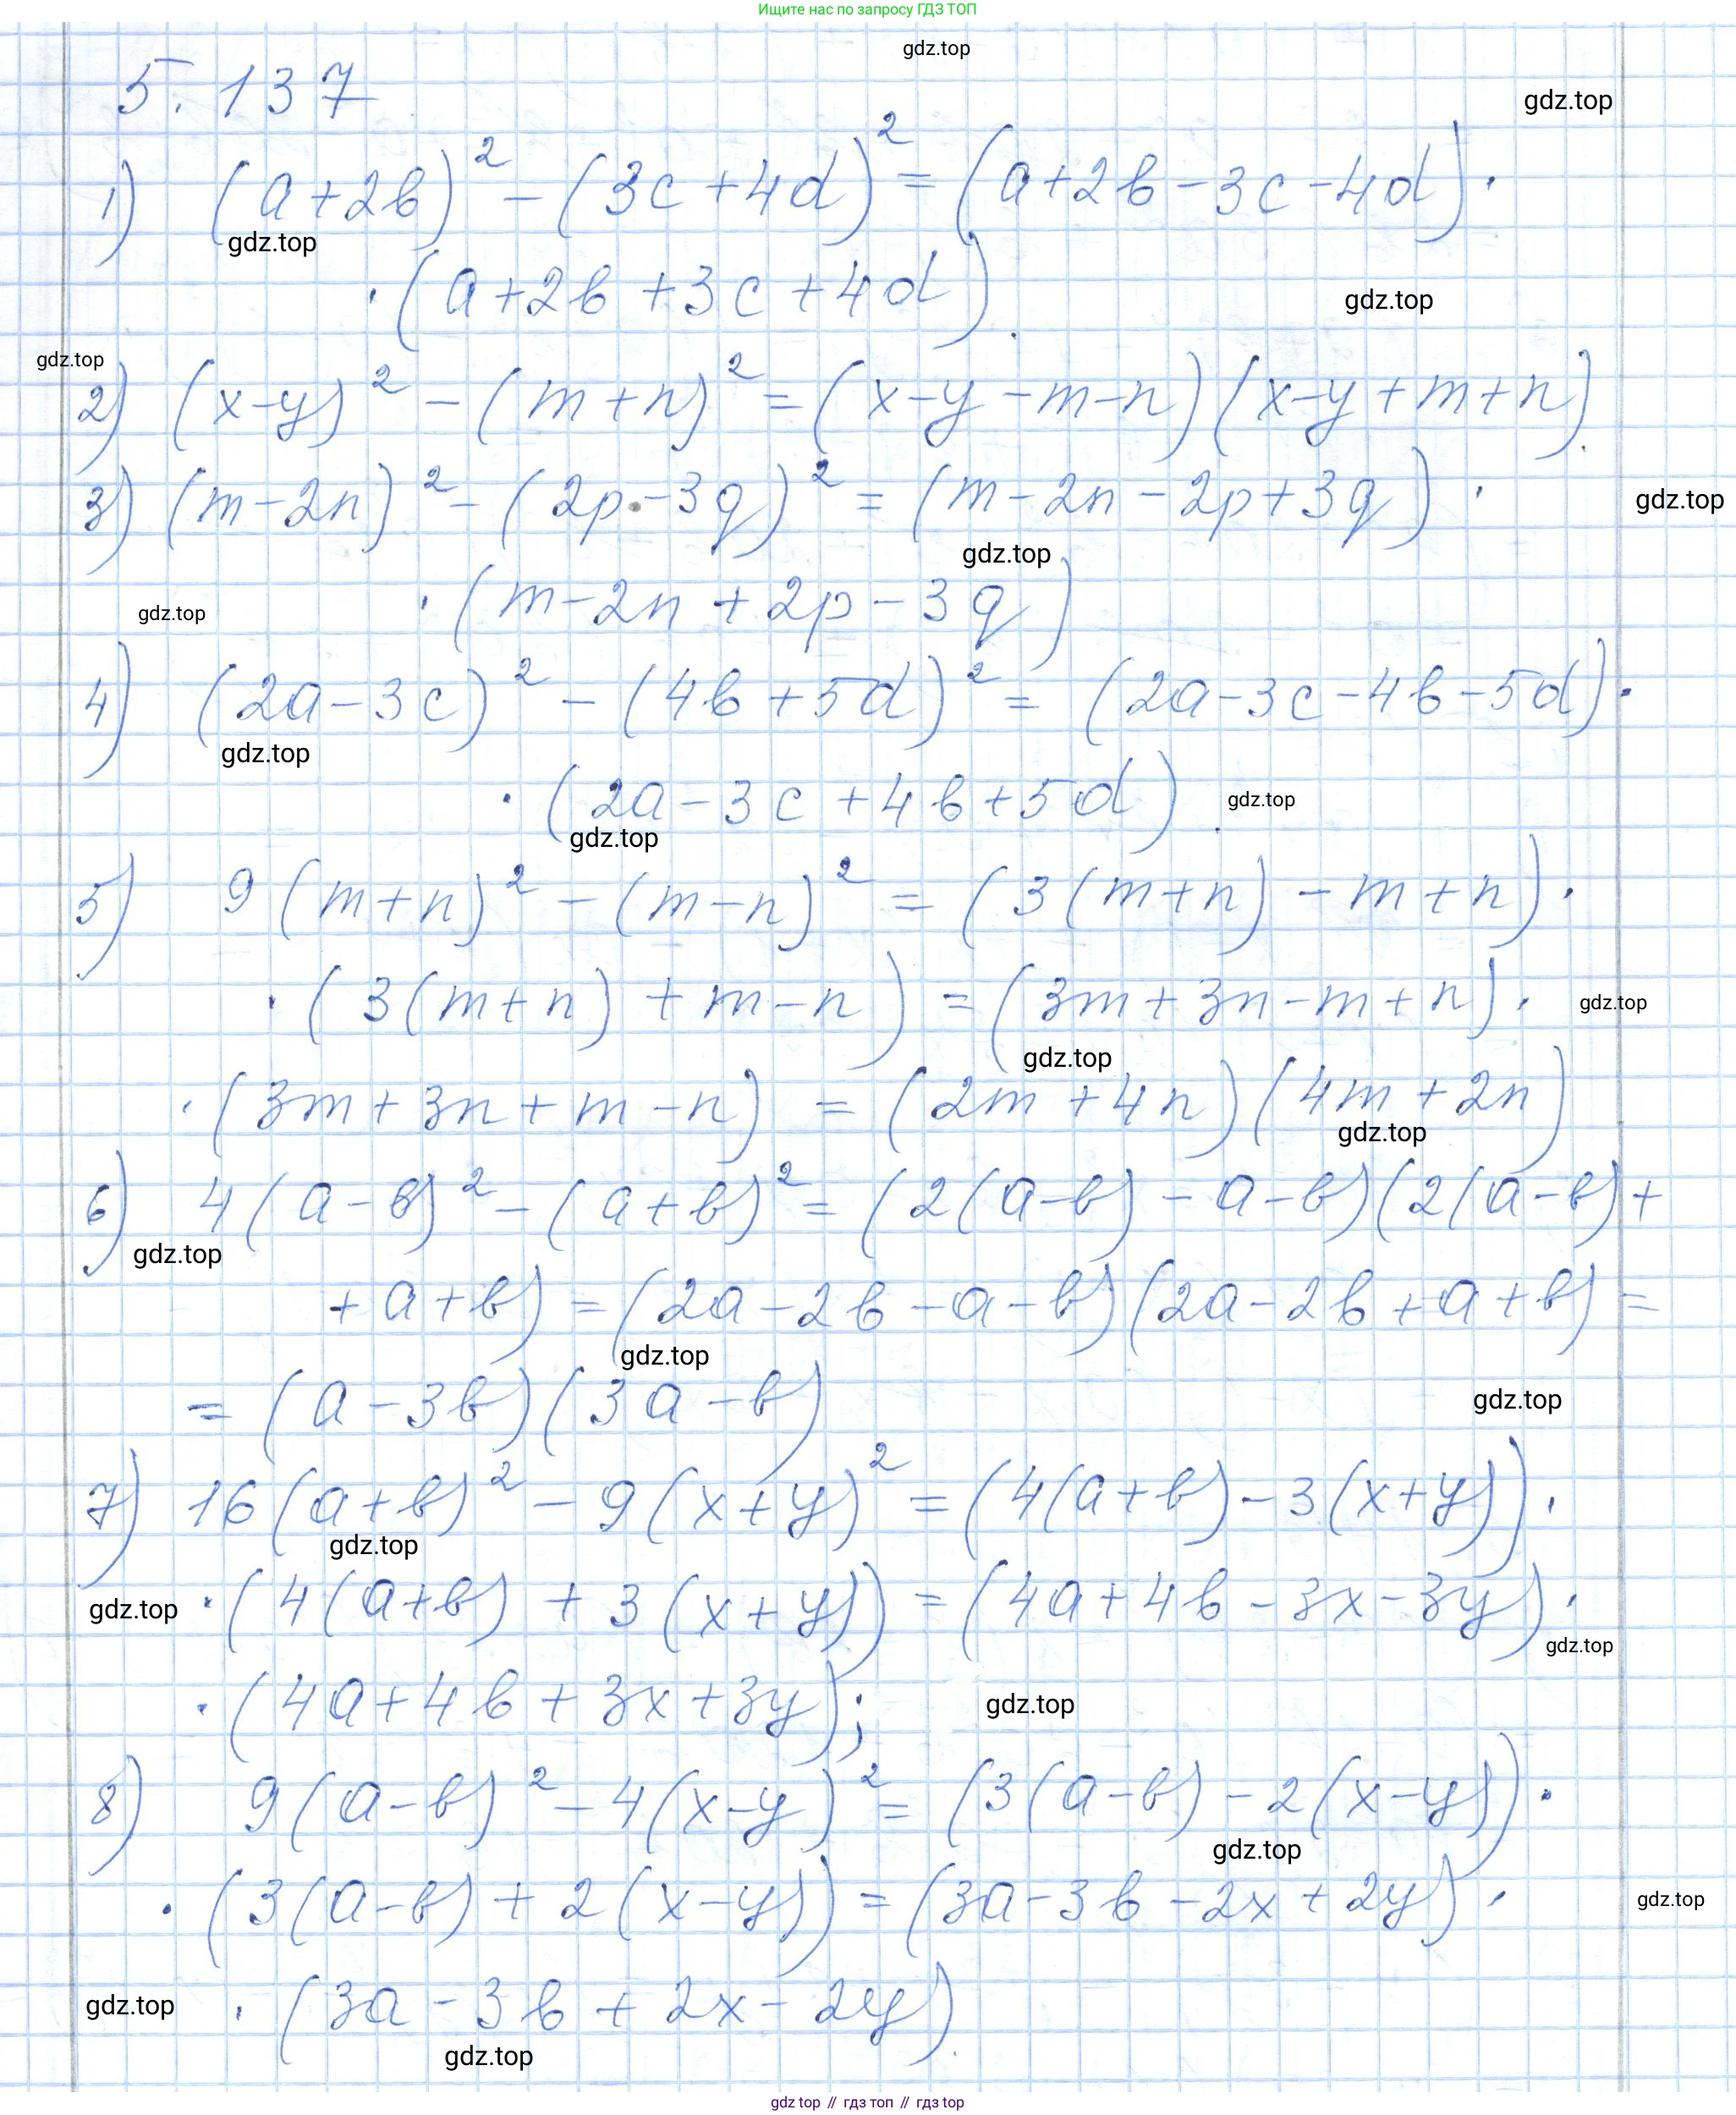 Ищите нас по запросу ГДЗ ТОП
gdz.top
5.137
gdz.top
1) (a+2b)² - (3c+4d)² = (a+2b-3c-4d)·
gdz.top
·(a+2b+3c+4d).
gdz.top
gdz.top
2) (x-y)² - (m+n)² = (x-y-m-n)(x-y+m+n).
3) (m-2n)² - (2p-3q)² = (m-2n-2p+3q)·
gdz.top
gdz.top
·(m-2n+2p-3q)
gdz.top
4) (2a-3c)² - (4b+5d)² = (2a-3c-4b-5d)·
gdz.top
·(2a-3c+4b+5d).
gdz.top
gdz.top
5) 9(m+n)² - (m-n)² = (3(m+n)-m+n)·
·(3(m+n)+m-n) = (3m+3n-m+n)·
gdz.top
gdz.top
·(3m+3n+m-n) = (2m+4n)(4m+2n)
gdz.top
6) 4(a-b)² - (a+b)² = (2(a-b)-a-b)(2(a-b)+
gdz.top
+a+b) = (2a-2b-a-b)(2a-2b+a+b) =
gdz.top
= (a-3b)(3a-b)
gdz.top
7) 16(a+b)² - 9(x+y)² = (4(a+b)-3(x+y))·
gdz.top
gdz.top
·(4(a+b)+3(x+y)) = (4a+4b-3x-3y)·
gdz.top
·(4a+4b+3x+3y);
gdz.top
8) 9(a-b)² - 4(x-y)² = (3(a-b)-2(x-y))·
gdz.top
·(3(a-b)+2(x-y)) = (3a-3b-2x+2y)·
gdz.top
gdz.top
·(3a-3b+2x-2y).
gdz.top
gdz top // гдз топ // гдз top